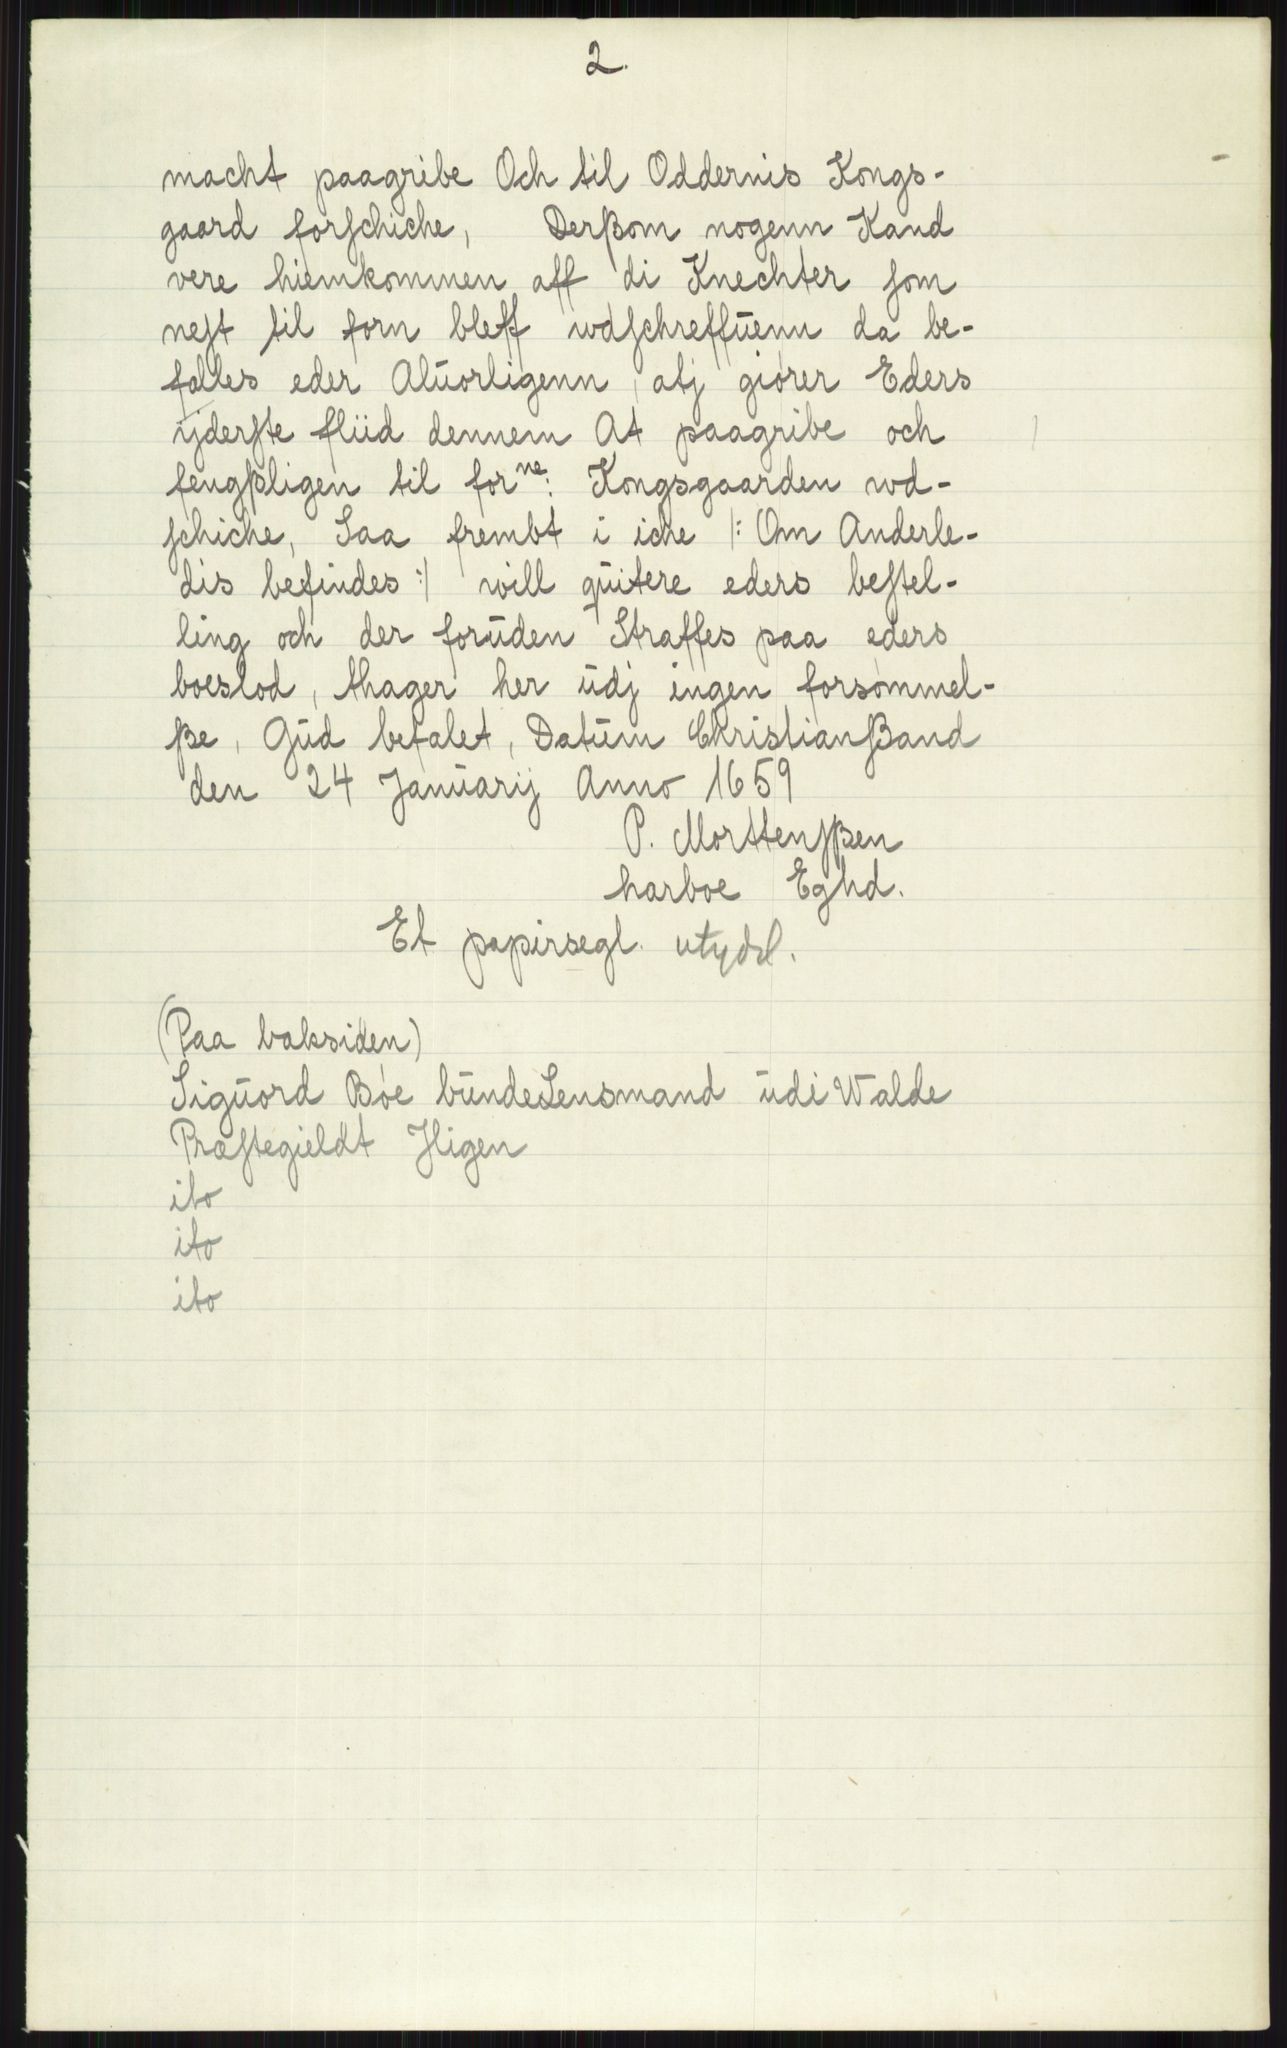 2.
macht paagribe Och til Oddernis Kongs-
gaard forſchiche, Derßom nogenn Kand
vere hiemkommen aff di Knechter ſom
neſt til forn bleff wdſchreffŭenn da be-
falles eder Alŭorligenn, atj giörer Eders
ÿderſte fliid dennem At paagribe och
fengßligen til for<sup>ne</sup>: Kongsgaarden wd-
ſchiche, Saa frembt i iche /: Om Anderle-
dis befindes :/ will qŭitere eders beſtel-
ling och der forŭden Straffes paa eders
boeslod, thager her ŭdj ingen forsömmel-
ße, Gŭd befalet, Datŭm Christianßand
den 24 Janŭarij Anno 1659
P. Morttenſßen
harboe Eghd.
Et papirsegl. utydl.
(Paa baksiden)
Sigŭord Böe bŭndeLensmand ŭdi Walde
Præſtegieldt Jligen
ito
ito
ito